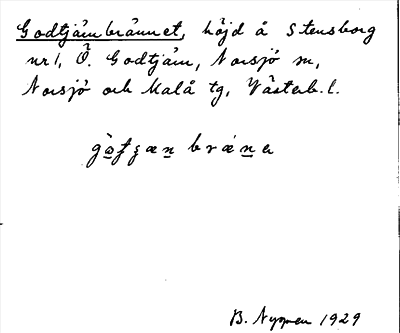 Godtjärnbrännet, höjd å Stensborg
nr 1, Ö. Godtjärn, Norsjö sn,
Norsjö och Malå tg, Västerb. l.
B. Nygren 1929